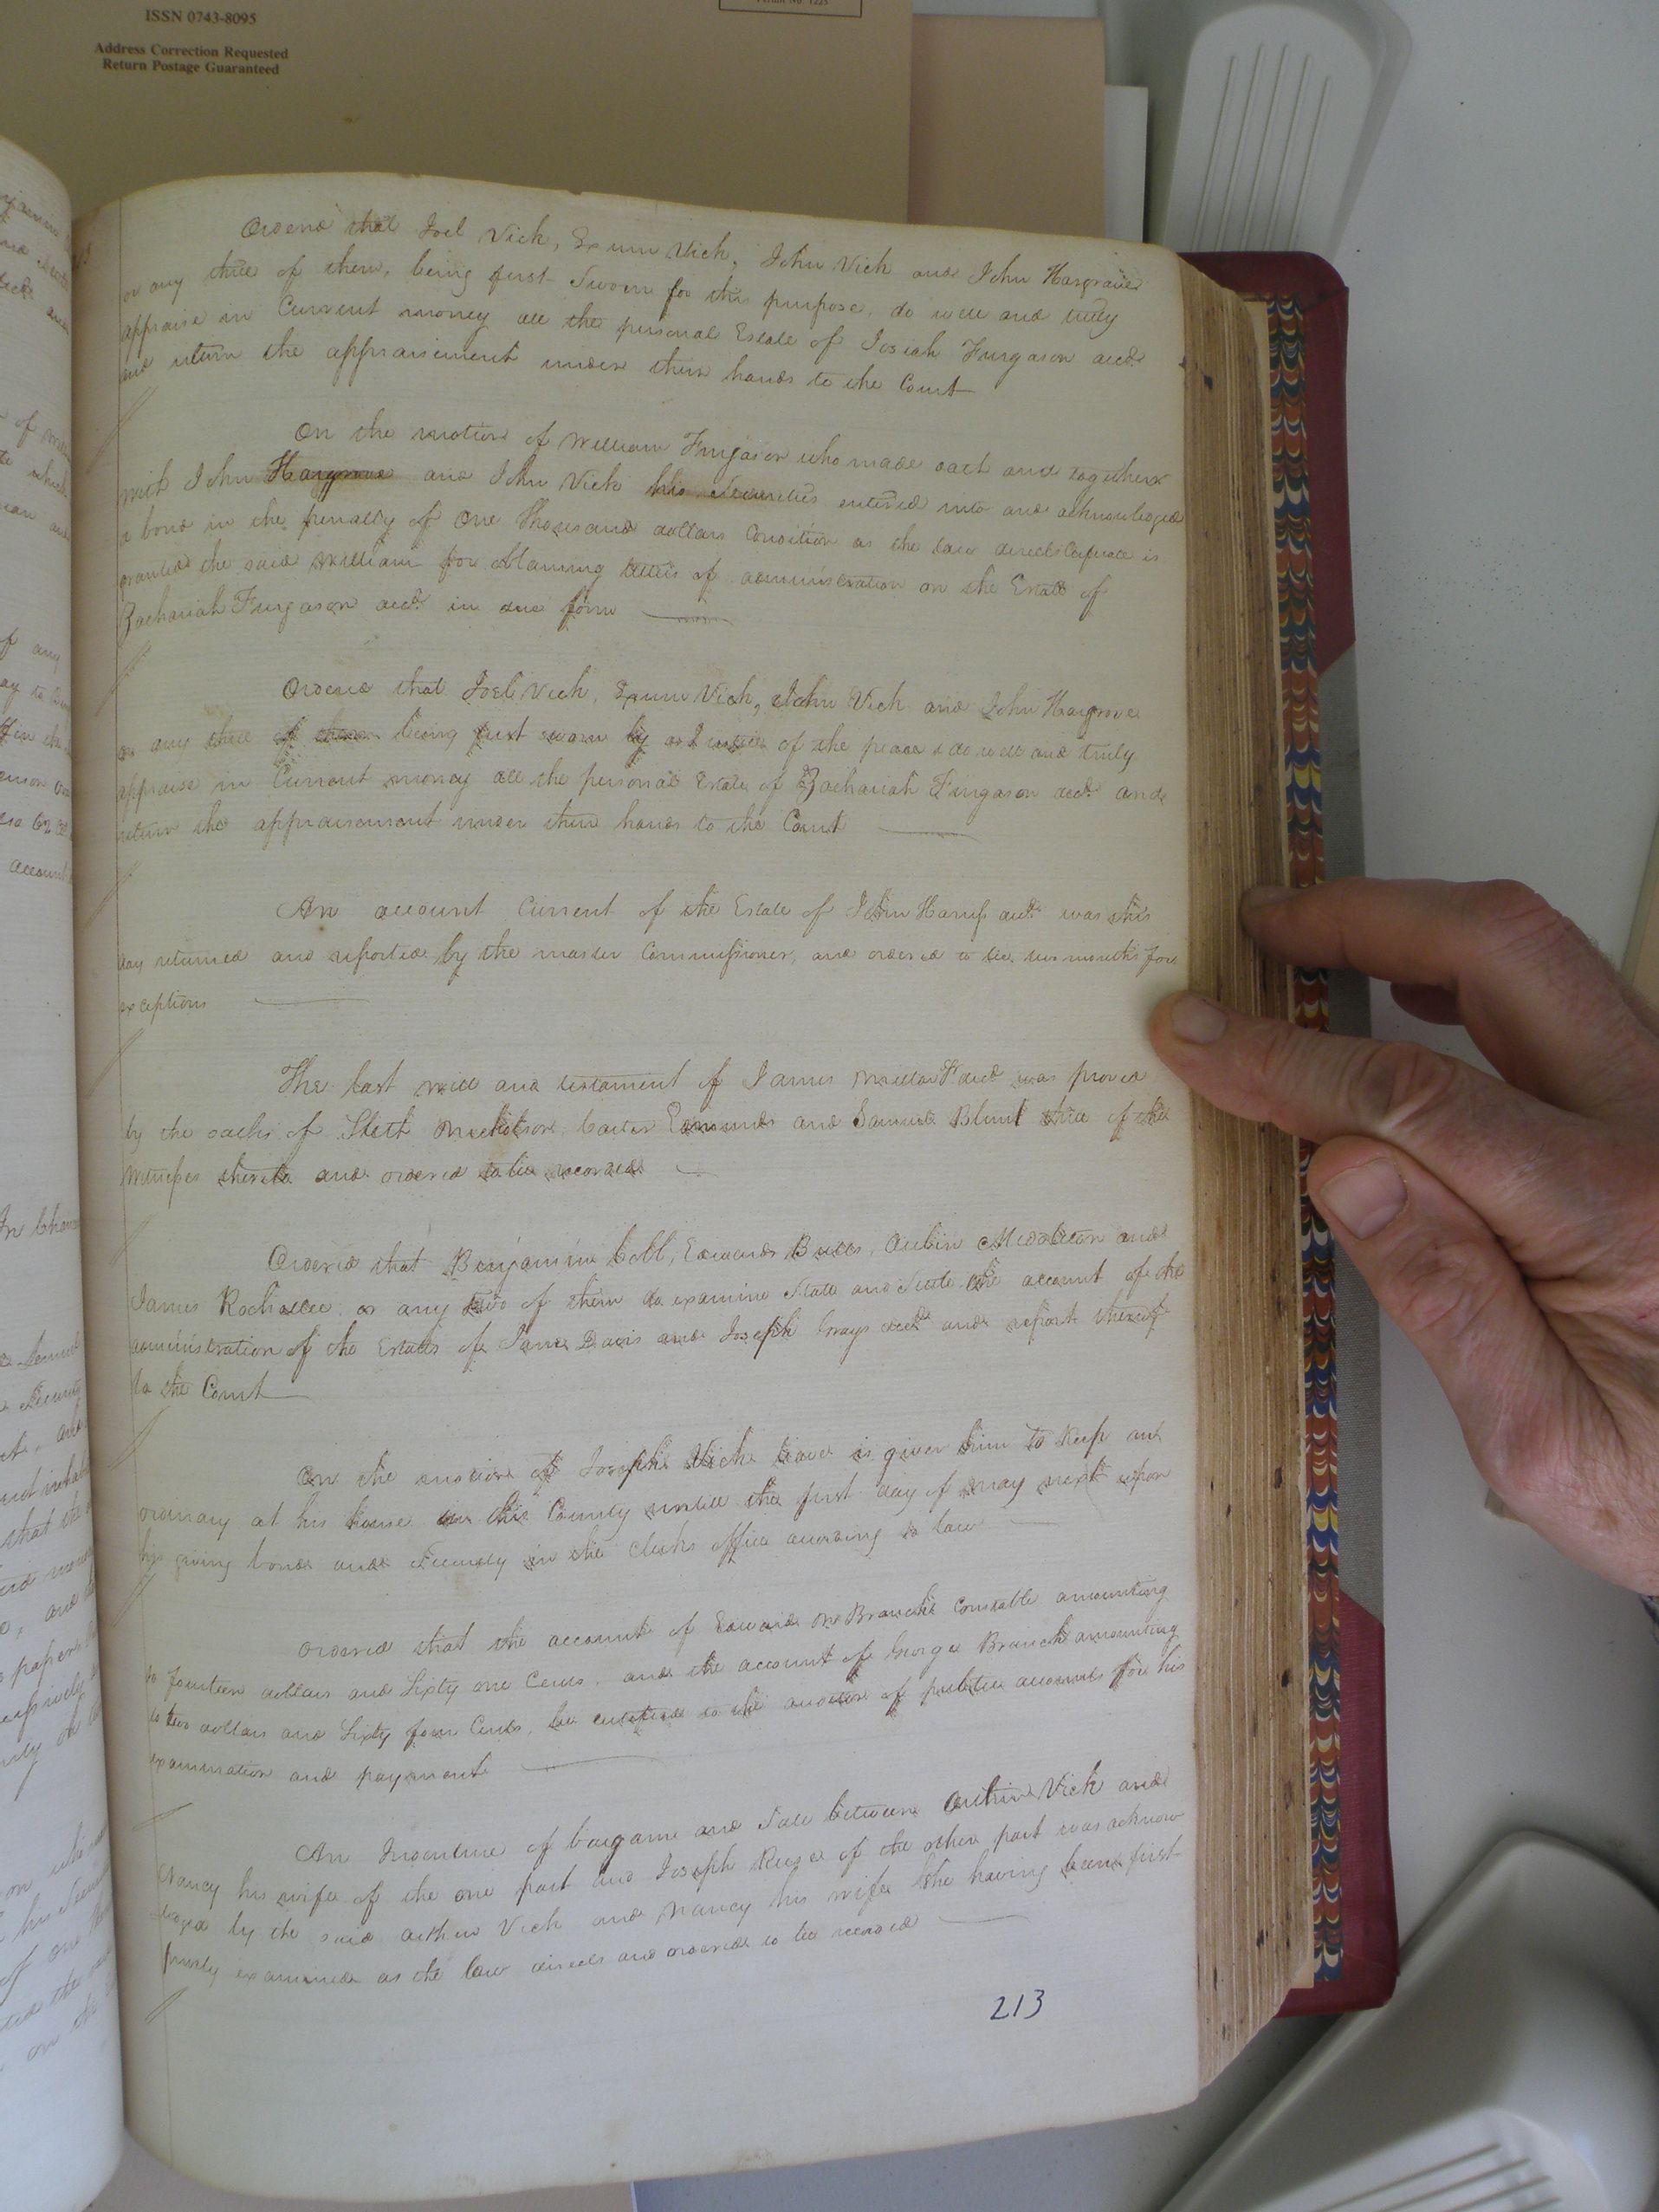 ISSN 0743-8095
Address Correction Requested
Return Postage Guaranteed
Ordered that Joel Vick, Exum Vick, John Vick and John Hargraves
or any three of them, being first Sworn for this purpose, do well and truly
appraise in Current money all the personal Estate of Josiah Furgason decd.
and return the appraisement under their hands to the Court
On the motion of William Furgason who made oath and together
with John Hargrove and John Vick his Securities entered into and acknowledged
a bond in the penalty of One Thousand dollars Condition as the law directs Certificate is
granted the said William for obtaining letters of administration on the Estate of
Zachariah Furgason decd. in due form
Ordered that Joel Vick, Exum Vick, John Vick and John Hargrove
or any three of them being first sworn by a Justice of the peace do well and truly
appraise in Current money all the personal Estate of Zachariah Furgason decd. and
return the appraisement under their hands to the Court
An account Current of the Estate of John Harriss decd. was this
day returned and reported by the master Commissioner, and ordered to lie two months for
exceptions
The last will and testament of James decd was proved
by the oaths of Steth Carter Edmunds and Samuel Blunt three of the
witnesses thereto and ordered to be recorded
Ordered that Benjamin Cobb, Edwards Butts, Aulin Middleton and
James Rochelle or any two of them do examine State and Settle the account of the
administration of the Estates of James Davis and Joseph Grays decd. and report thereof
to the Court
On the motion of Joseph Vick leave is given him to Keep an
ordinary at his house in this County untill the first day of may next upon
his giving bond and Security in the Clerks office according to law
Ordered that the account of Edward Branch Constable amounting
to fourteen dollars and Sixty one Cents, and the account of George Branch amounting
to two dollars and Sixty four Cents, be certified to the auditor of public accounts for his
examination and payment
An Indenture of bargain and Sale between Arthur Vick and
Nancy his wife of the one part and Joseph of the other part was acknow
ledged by the said Arthur Vick and Nancy his wife She having been first
privily examined as the law directs and ordered to be recorded
213